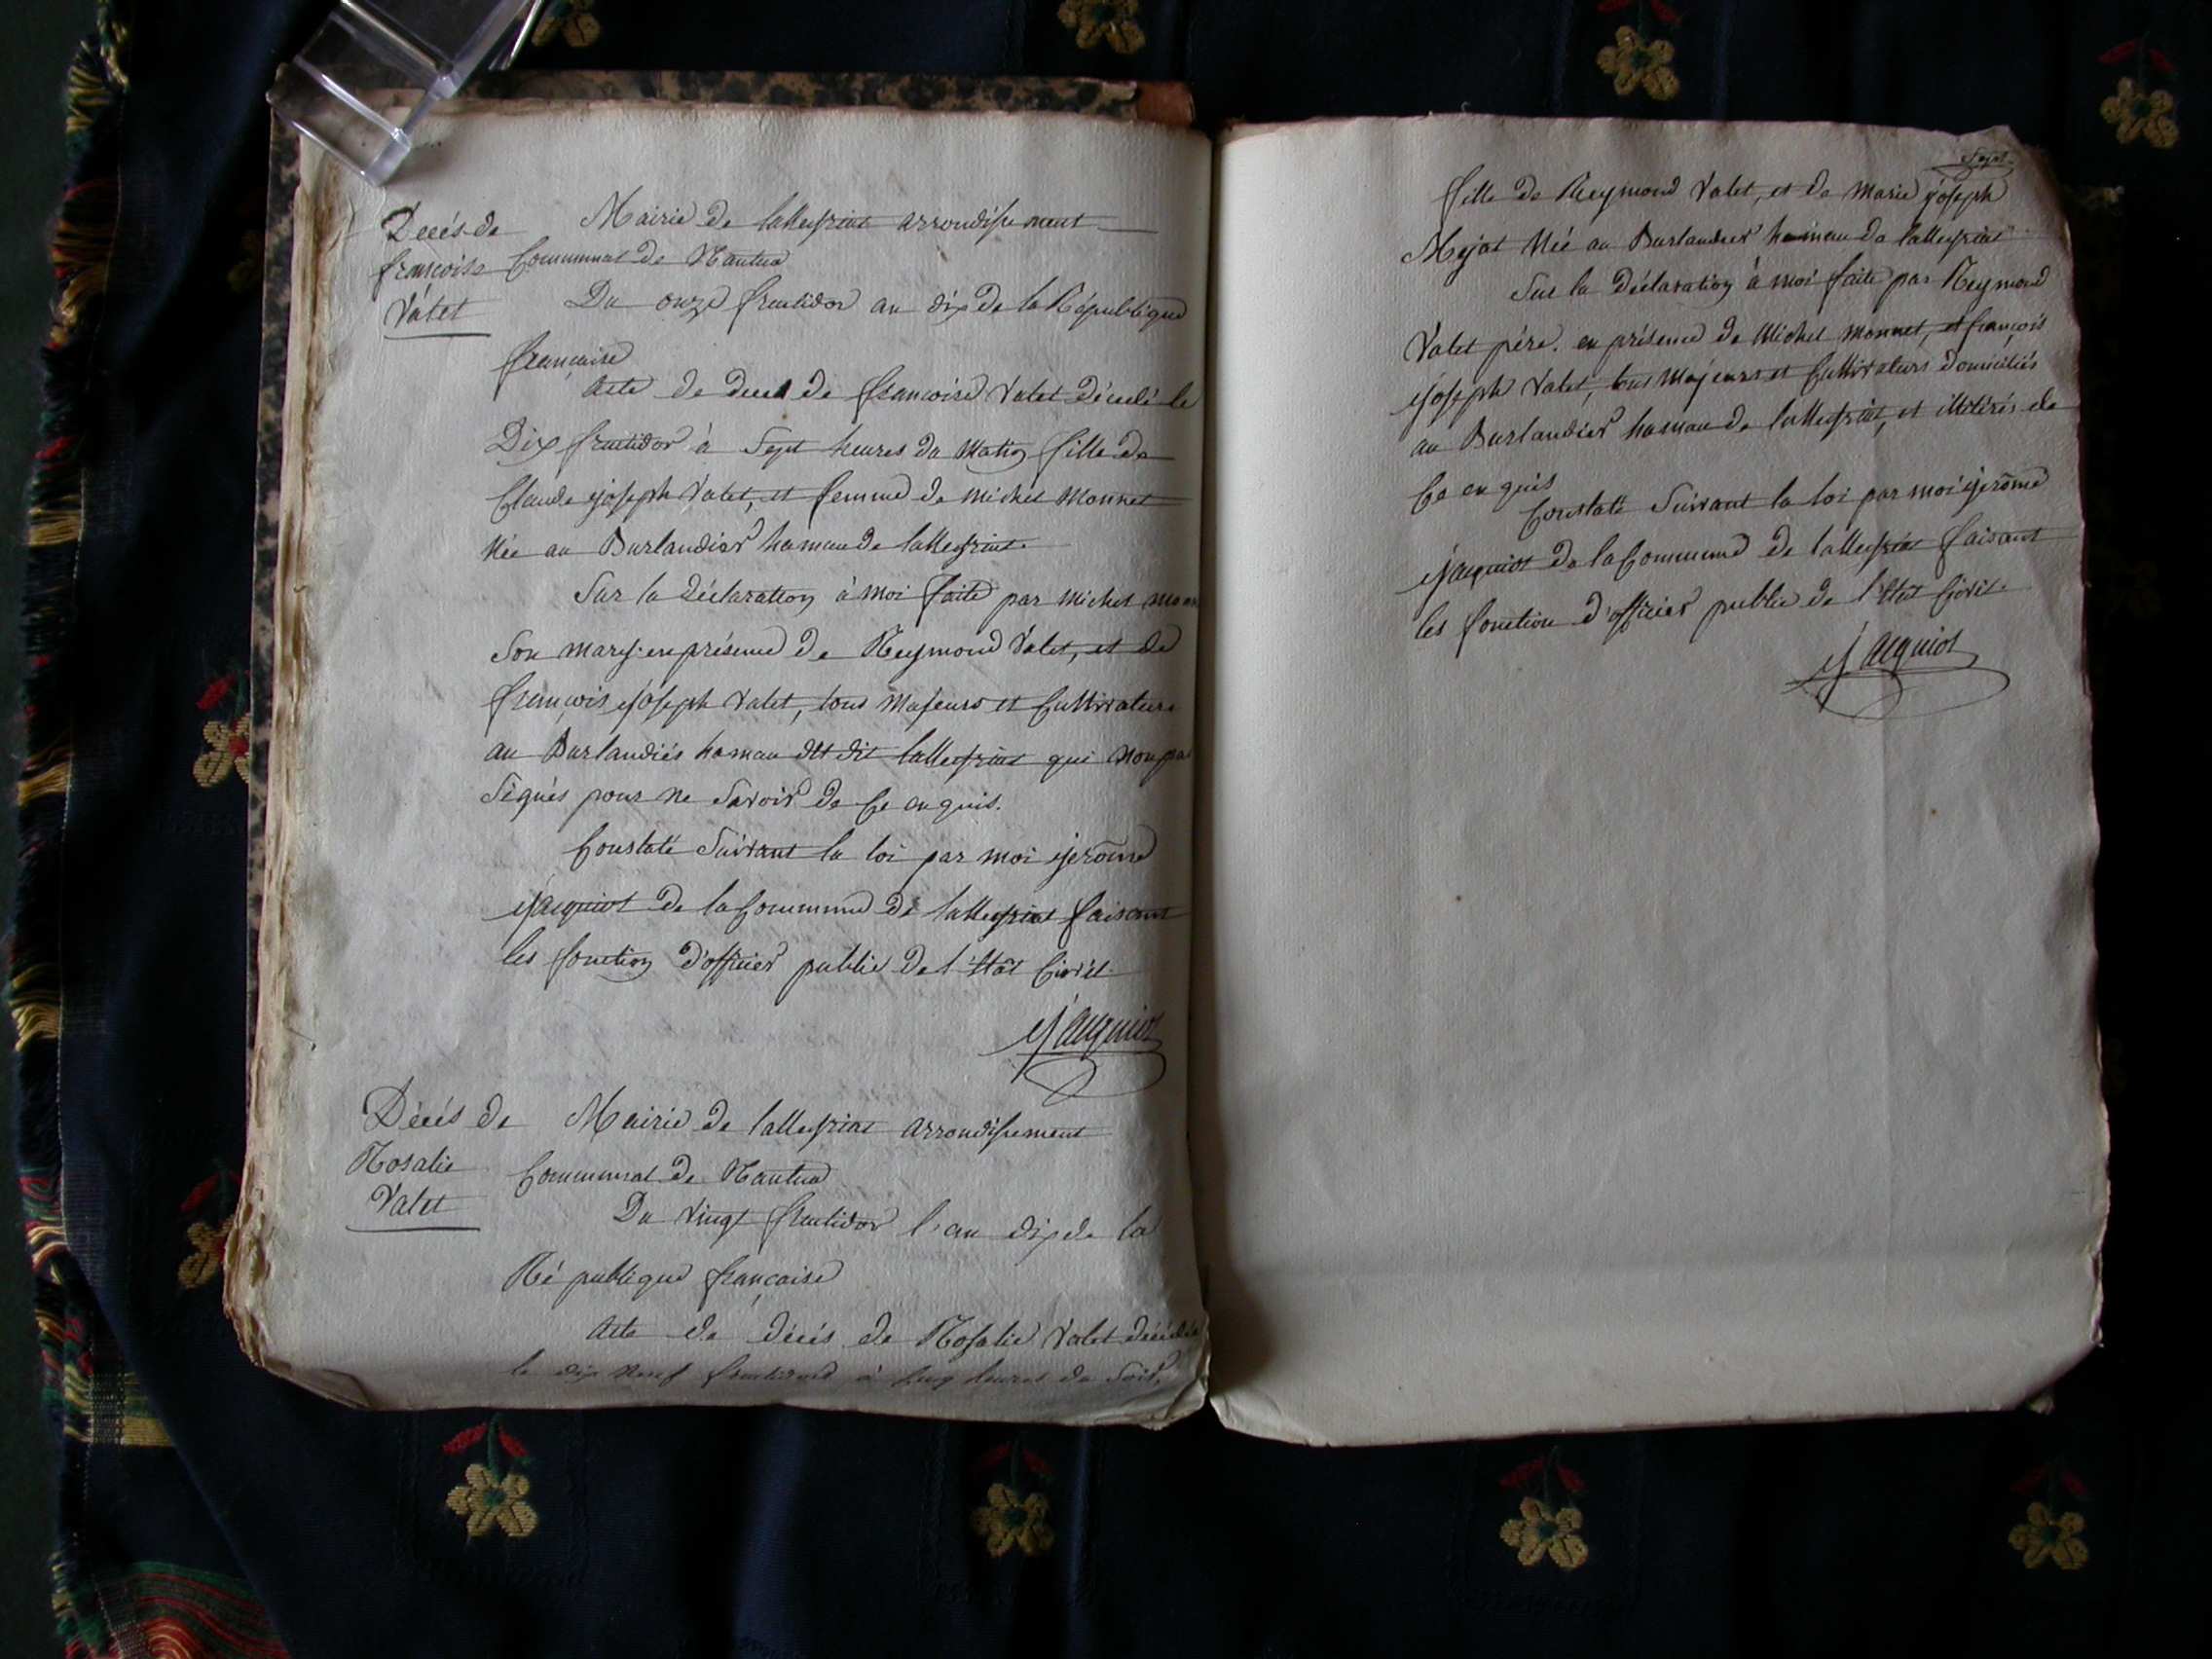 Decés de
françoise
Vatet
Mairie de lalleyriat arrondissement
Communal de Nantua
Du onze fructidor an dix de la République
française
Acte de decès de françoise Vatet décedé le
Dix fructidor à Sept heures du Matin fille de
Claude joseph Vatet, et femme de michel Monnet
Née au Burlandier hamau de lalleyriat.
Sur la déclaration à moi faite par michel monn
Son mary en présence de Reymond Vatet, et de
françois joseph Vatet, tous majeurs et Cultivateurs
au Burlandiés hamau dit lalleyriat qui non pas
Signés pour ne Savoir de Ce enquis.
Constaté Suivant la loi par moi jerôme
jacquiot de la Commune de lalleyriat faisant
les fonction d'officier public de l'état Civil.
jacquiot
Décés de
Rosalie
Vatet
Mairie de lalleyriat arrondissement
Communal de Nantua
Du vingt fructidor l'an dix de la
République française
Acte de décés de Rosalie Vatet décédée
le dix neuf fructidor à Cinq heures du Soir,
Sept
fille de Reymond Vatet, et de marie joseph
Mejat Née au Burlandier hamau de lalleyriat
Sur la Déclaration à moi faite par Reymond
Vatet père. en présence de Michel Monnet, et françois
joseph Vatet, tous Majeurs et Cultivateurs domiciliés
au Burlandier hamau de lalleyriat, et illitérés de
Ce enquis
Constaté Suivant la loi par moi jerôme
jacquiot de la Commune de lalleyriat faisant
les fonction d'officier public de l'état Civil.
jacquiot